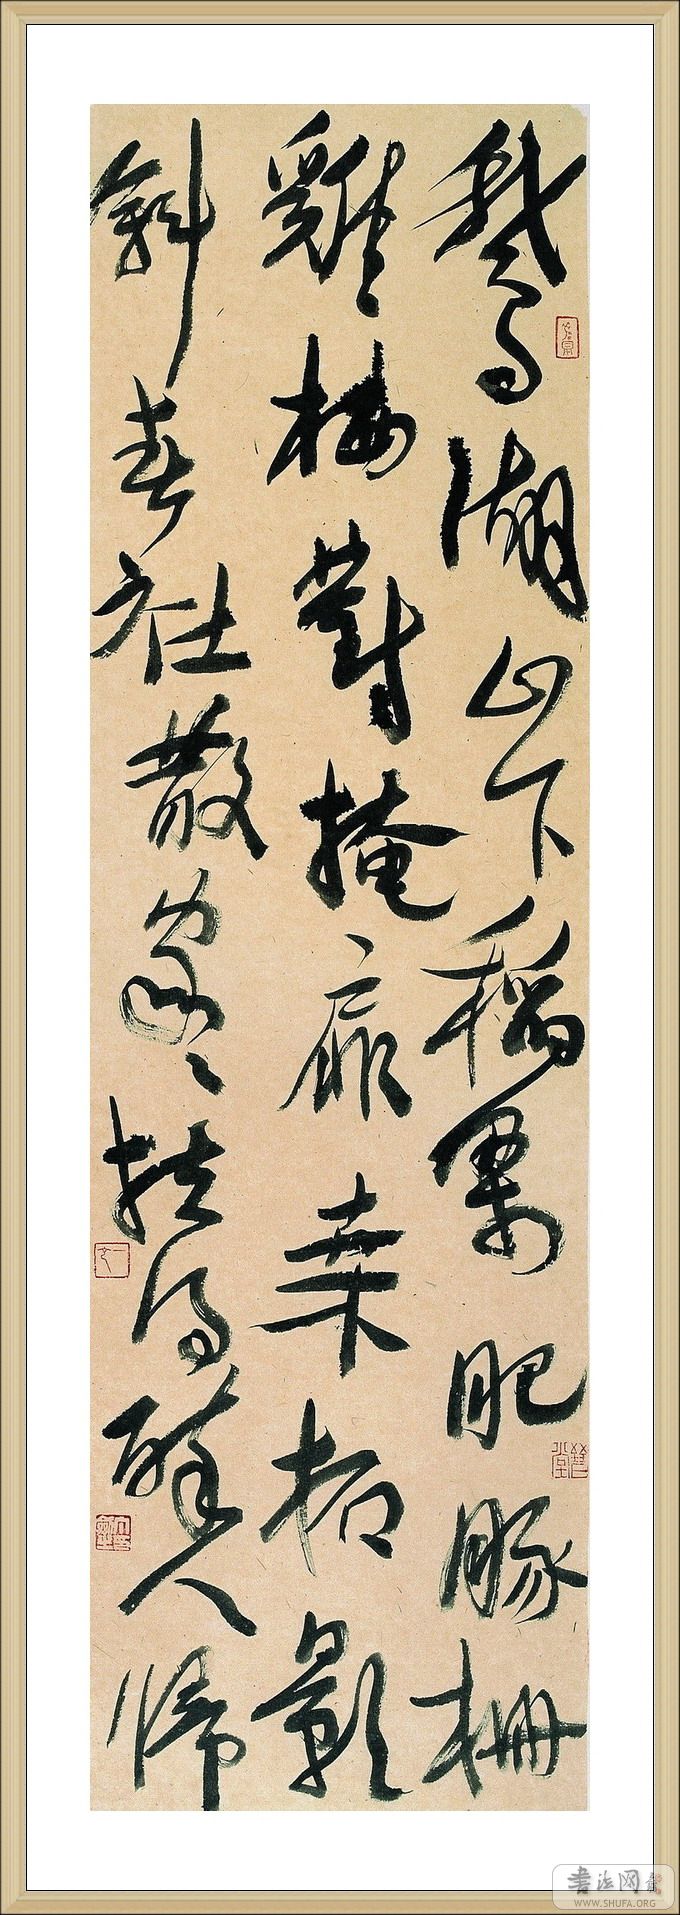 鵝湖山下稻粱肥豚柵
雞棲對掩扉桑柘影
斜春社散家々扶得醉人歸
書法网
WWW.SHUFA.ORG